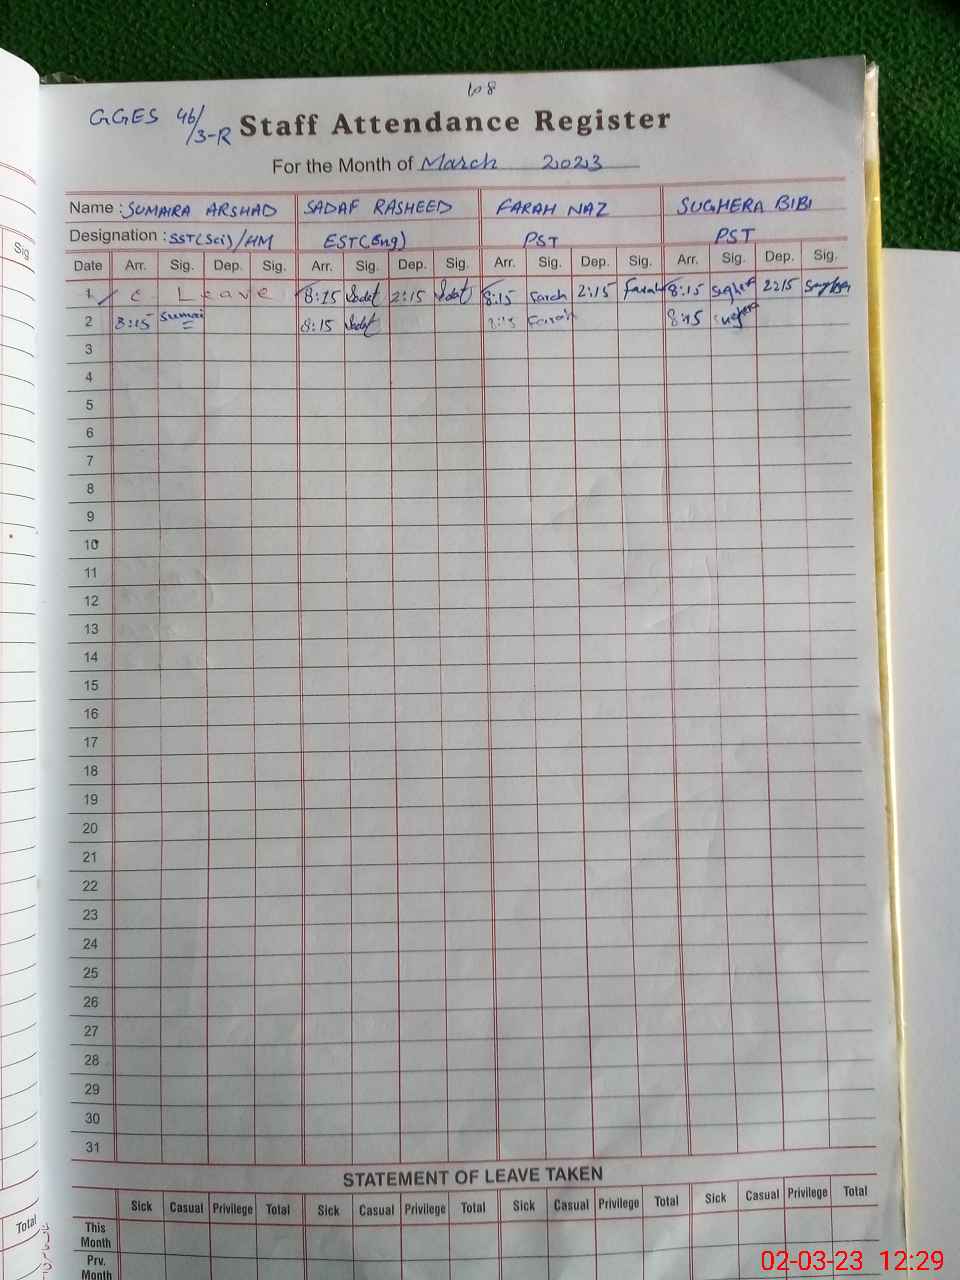 108
GGES 46/3-R Staff Attendance Register
For the Month of March 2023
Name : SUMAIRA ARSHAD SADAF RASHEED FARAH NAZ SUGHERA BIBI
Designation : SST(Sci)/HM EST(Eng) PST PST
Date Arr. Sig. Dep. Sig. Arr. Sig. Dep. Sig. Arr. Sig. Dep. Sig. Arr. Sig. Dep. Sig.
1 C Leave 8:15 Sadaf 2:15 Sadaf 8:15 Farah 2:15 Farah 8:15 2:15
2 8:15 Sumai 8:15 Sadaf 8:15 Farah 8:15
3
4
5
6
7
8
9
10
11
12
13
14
15
16
17
18
19
20
21
22
23
24
25
26
27
28
29
30
31
STATEMENT OF LEAVE TAKEN
Sick Casual Privilege Total Sick Casual Privilege Total Sick Casual Privilege Total Sick Casual Privilege Total
This Month
Prv. Month
Sig
Total
02-03-23 12:29